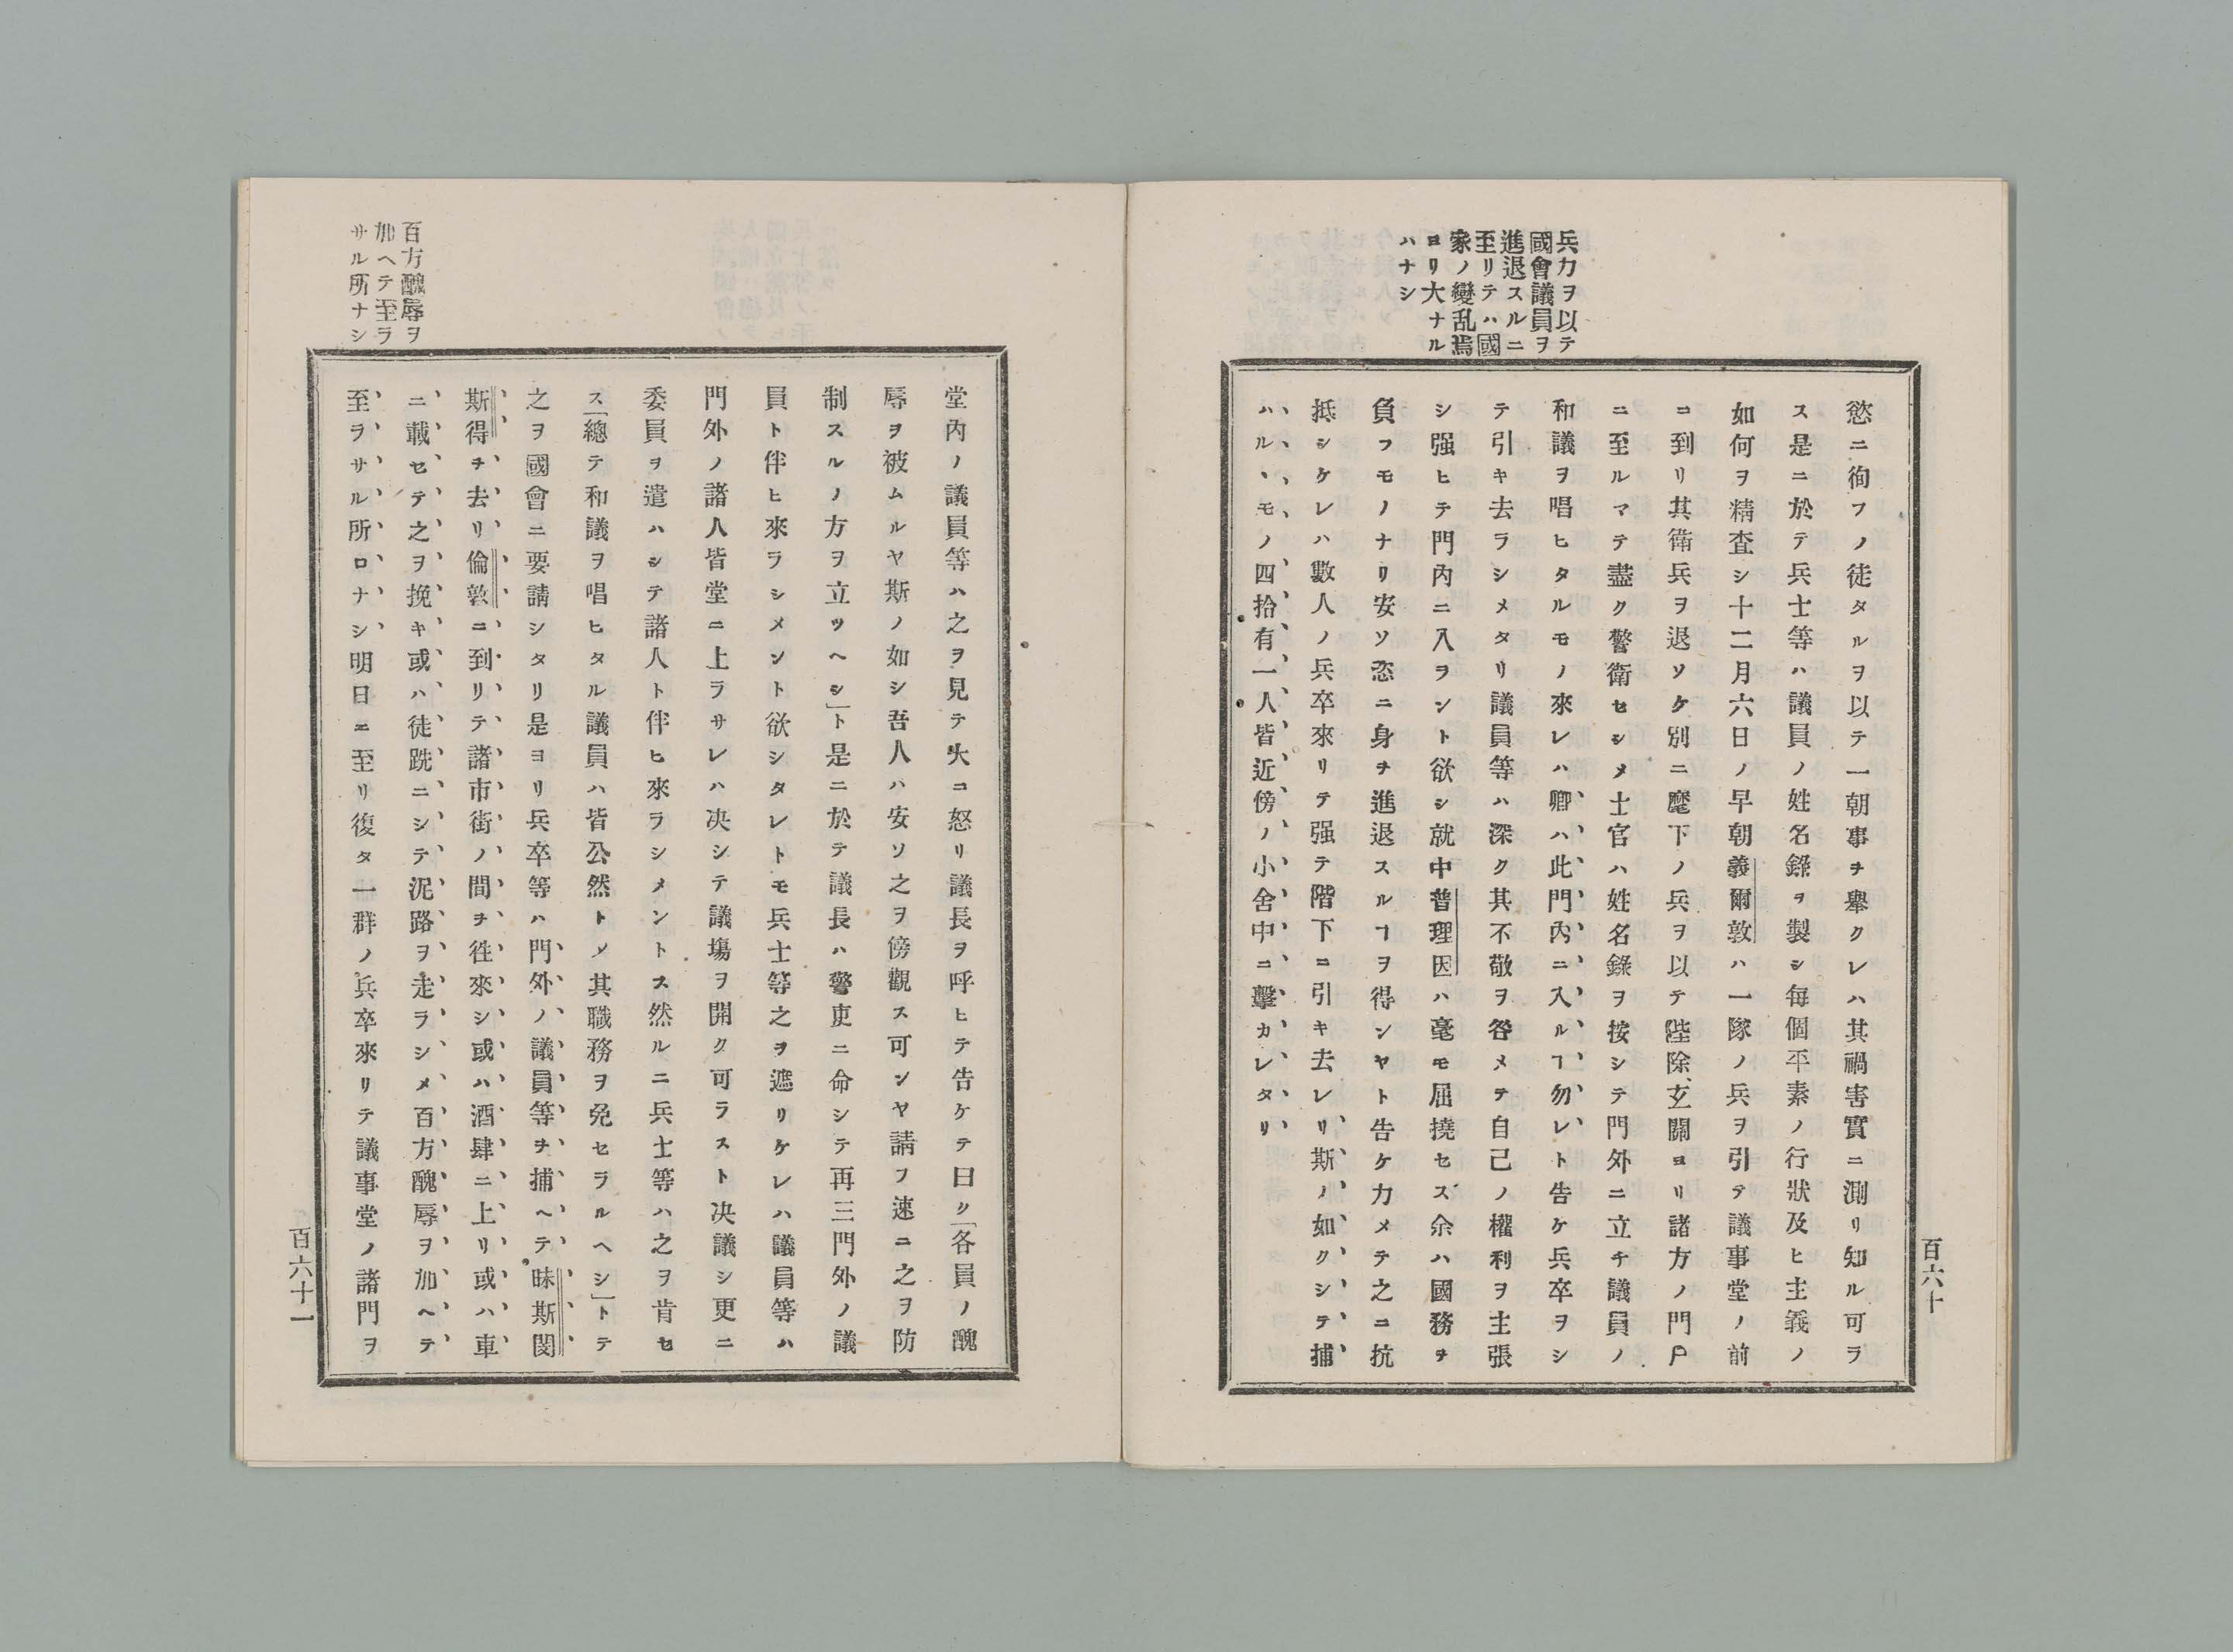 兵力ヲ以テ
國會議員ヲ
進退スルニ
至リテハ國
家ノ變乱焉
ヨリ大ナル
ハナシ
慾ニ徇フノ徒タルヲ以テ一朝事チ舉クレハ其禍害實ニ測リ知ル可ラ
ス是ニ於テ兵士等ハ議員ノ姓名錄ヲ製シ每個平素ノ行狀及ヒ主義ノ
如何ヲ精査シ十二月六日ノ早朝義爾敦ハ一隊ノ兵ヲ引テ議事堂ノ前
ニ到リ其衛兵ヲ退ソケ別ニ麾下ノ兵ヲ以テ陛除、玄關ヨリ諸方ノ門戶
ニ至ルマテ盡ク警衛セシメ士官ハ姓名錄ヲ按シテ門外ニ立チ議員ノ
和議ヲ唱ヒタルモノ來レハ卿ハ此門內ニ入ルヿ勿レト告ケ兵卒ヲシ
テ引キ去ラシメタリ議員等ハ深ク其不敬ヲ咎メテ自己ノ權利ヲ主張
シ强ヒテ門內ニ入ラント欲シ就中普理因ハ毫モ屈撓セス余ハ國務ヲ
負フモノナリ安ソ恣ニ身チ進退スルヿヲ得ンヤト告ケ力メテ之ニ抗
抵シケレハ數人ノ兵卒來リテ强テ階下ニ引キ去レリ斯ノ如クシテ捕
ハル、モノ四拾有一人皆近傍ノ小舍中ニ擊カレタリ
百六十
百方醜辱ヲ
加ヘテ至ラ
サル所ナシ
堂內ノ議員等ハ之ヲ見テ大ニ怒リ議長ヲ呼ヒテ告ケテ曰ク「各員ノ醜
辱ヲ被ムルヤ斯ノ如シ吾人ハ安ソ之ヲ傍觀ス可ンヤ請フ速ニ之ヲ防
制スルノ方ヲ立ツヘシ」ト是ニ於テ議長ハ警吏ニ命シテ再三門外ノ議
員ト伴ヒ來ラシメント欲シタレトモ兵士等之ヲ遮リケレハ議員等ハ
門外ノ諸人皆堂ニ上ラサレハ决シテ議塲ヲ開ク可ラスト决議シ更ニ
委員ヲ遣ハシテ諸人ト伴ヒ來ラシメントス然ルニ兵士等ハ之ヲ肯セ
ス「總テ和議ヲ唱ヒタル議員ハ皆公然トメ其職務ヲ免セラルヘシ」トテ
之ヲ國會ニ要請シタリ是ヨリ兵卒等ハ門外ノ議員等ヲ捕ヘテ昧斯閔
斯得チ去リ倫敦ニ到リテ諸市街ノ間チ徃來シ或ハ酒肆ニ上リ或ハ車
ニ載セテ之ヲ挽キ或ハ徒跣ニシテ泥路ヲ走ラシメ百方醜辱ヲ加ヘテ
至ラサル所ロナシ明日ニ至リ復タ一群ノ兵卒來リテ議事堂ノ諸門ヲ
百六十一